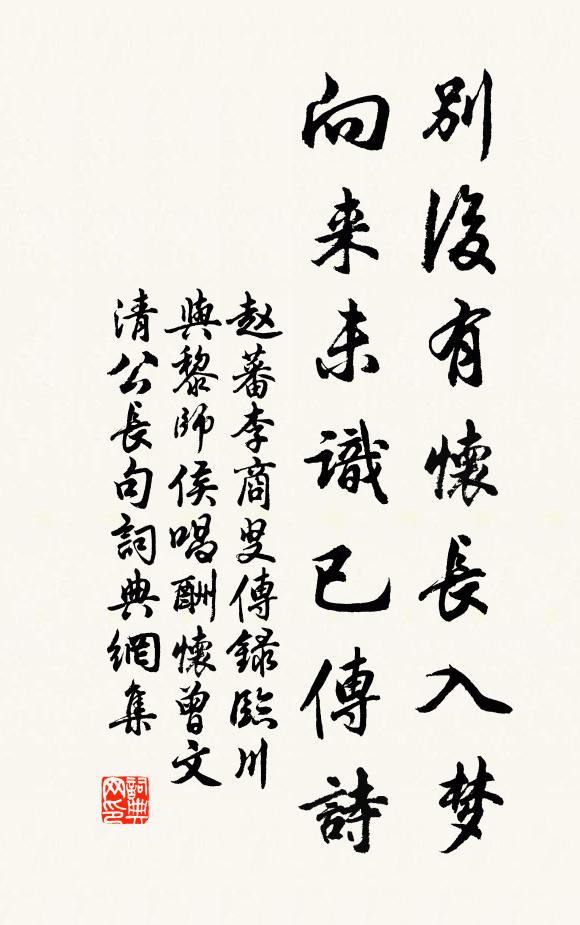 別後有懷長入梦
向来未識已傳詩
赵蕃李商叟傳録臨川
與黎師侯唱酬懷曾文
清公長句詞典網集
詞典网印